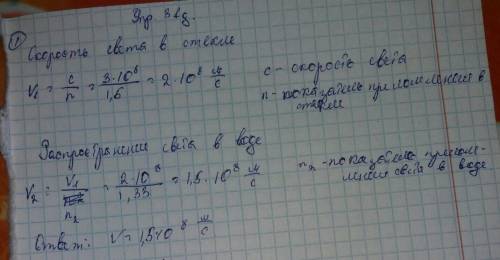 Упр 31д.
① Скорость света в стекле
V₁ = c/n = 3·10⁸/1,6 = 2·10⁸ м/с
c – скорость света
n – показатель преломления в
стекле
Распространение света в воде
V₂ = V₁/n₂ = 2·10⁸/1,33 = 1,5·10⁸ м/с
n₂ – показатель прелом-
ления света в воде
Ответ: V = 1,5·10⁸ м/с